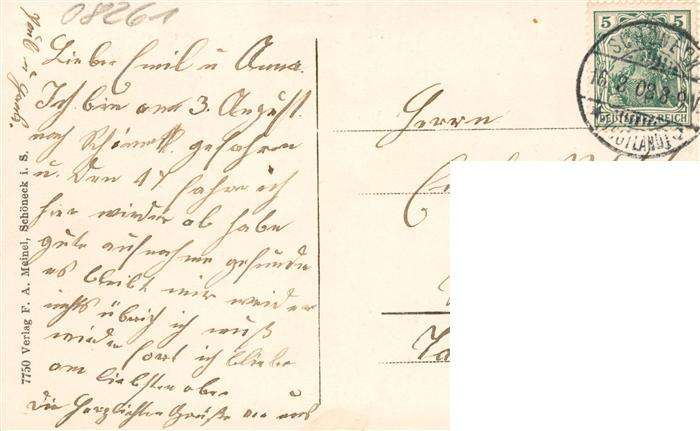 08261
Liebe Emil u Anna.
Ich bin am 3. August.
nach Schöneck gefahren
u. Den 17 fahre ich
hier wieder ab habe
gute aufnahme gefunden
es bleibt mir weider
nichts übrich ich muß
wieder fort ich bliebe
am liebsten oben
Die herzlichsten Grüße von uns
7750 Verlag F. A. Meinel, Schöneck i. S.
Herrn
5 5
DEUTSCHES REICH
16 8 09 8-9
VOGTLAND